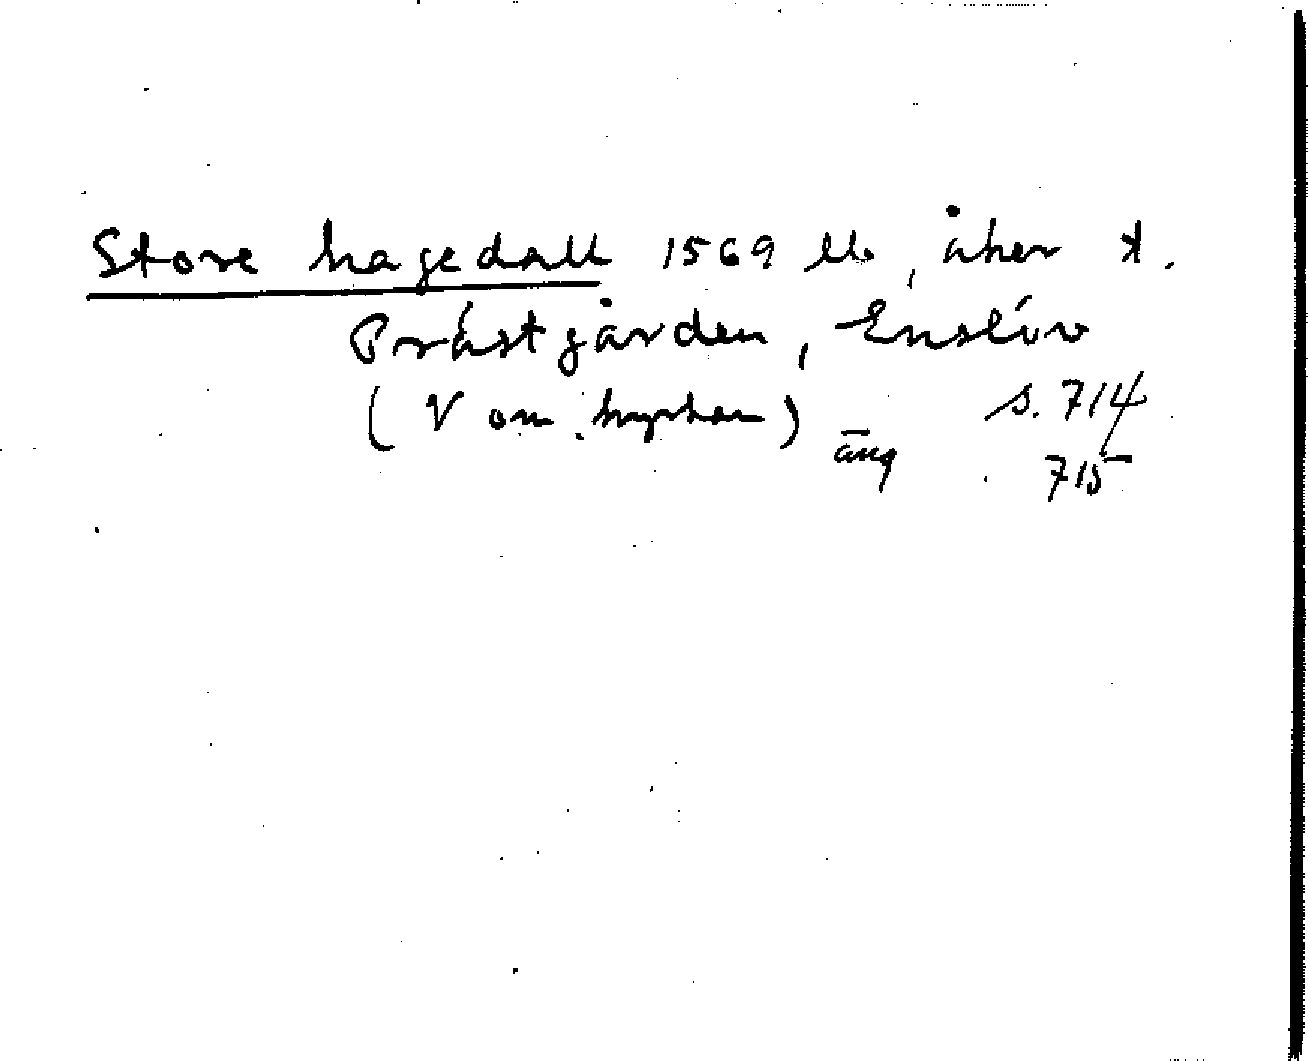 Store hagedall 1569 Llb, åker t.
Prästgården, Enslöv
(V om kyrkan) äng s. 714
715